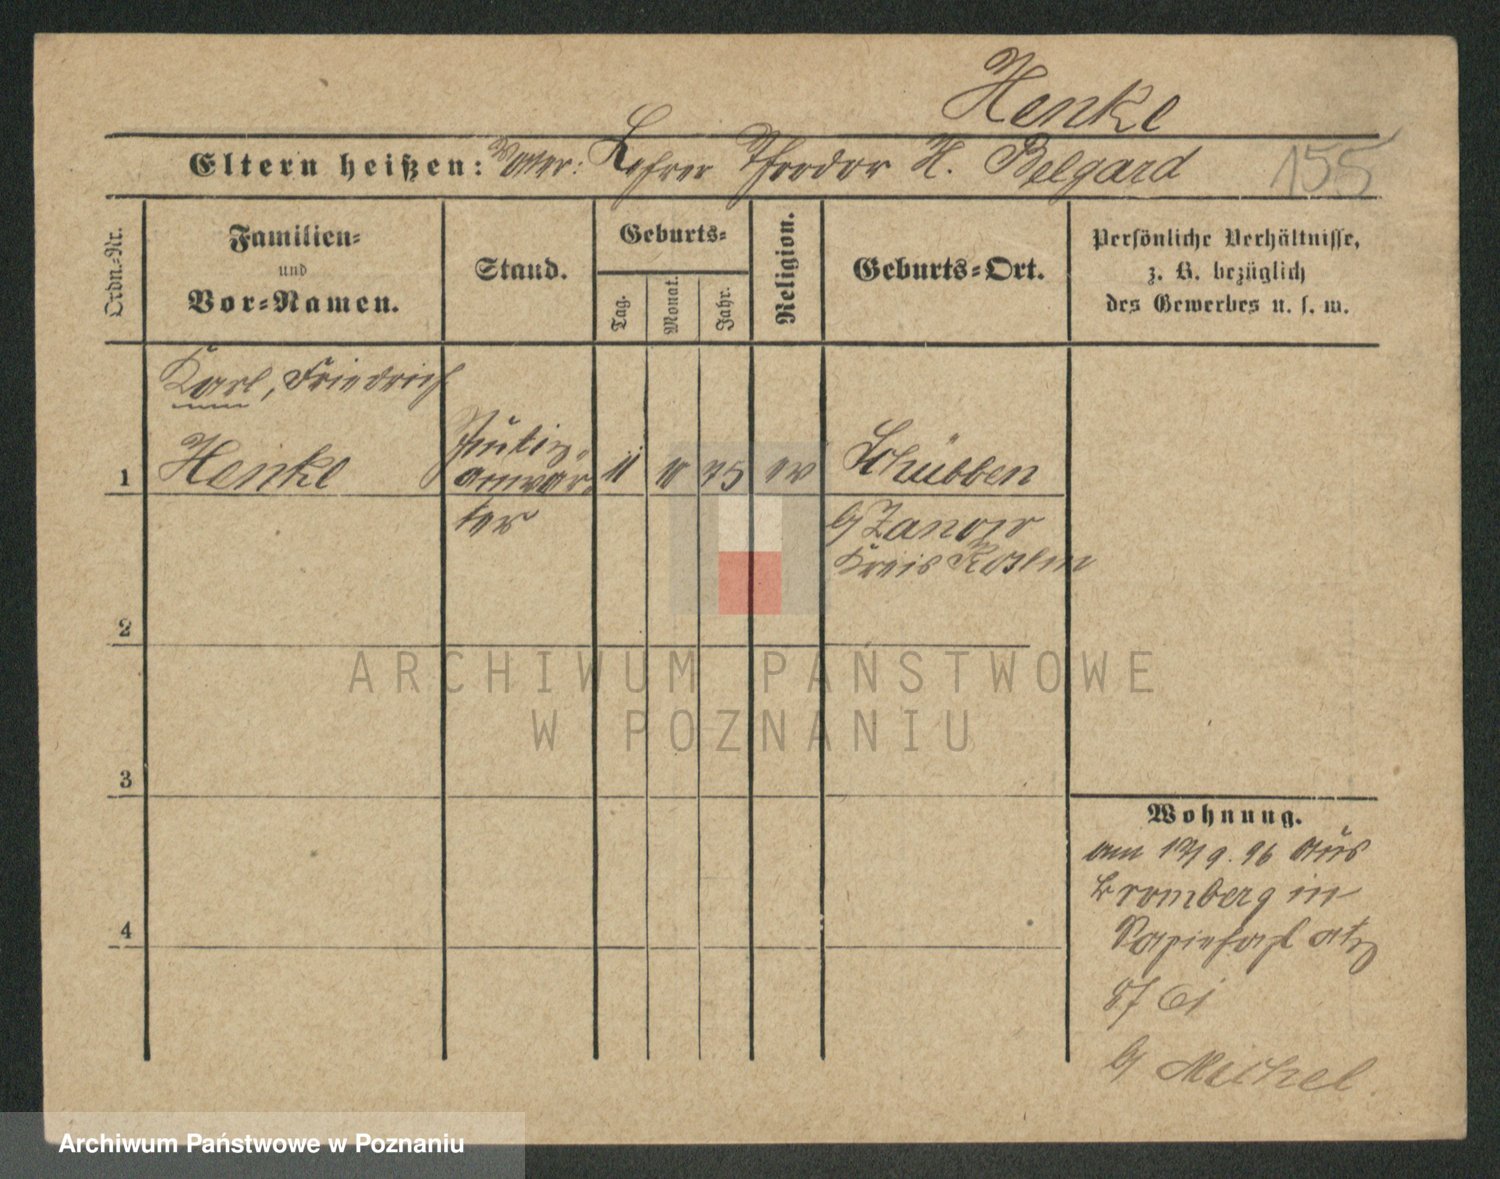 Henkel
Eltern heißen: Vater: Lehrer Theodor H. Belgard 155
Ordn.-Nr.
Familien-
und
Vor-Namen.
Stand.
Geburts-
Tag.
Monat.
Jahr.
Religion.
Geburts-Ort.
Persönliche Verhältnisse,
z. B. bezüglich
des Gewerbes u. s. w.
Karl, Friedrich
1 Henkel Justiz- 11 10 75 ev Schübben
anwär-
ter
b/ Zanow
Kreis Köslin
2
3
4
Wohnung.
am 17/9. 96 aus
Bromberg in
Sapiehaplatz
b/ Michel
ARCHIWUM PAŃSTWOWE
W POZNANIU
Archiwum Państwowe w Poznaniu